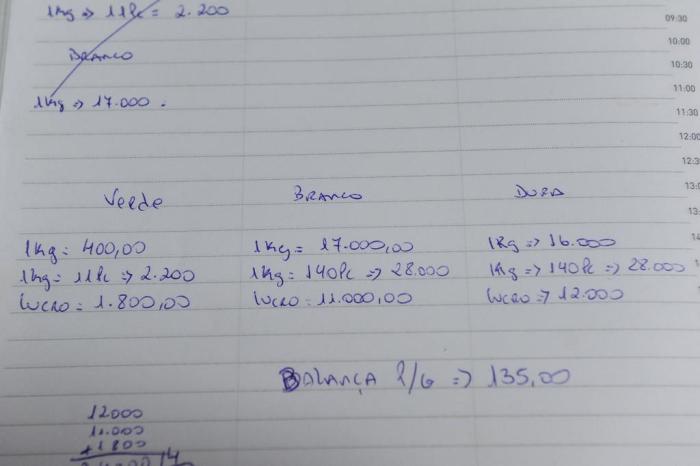 1Kg => 11Pc = 2.200
09:30
BRANCO
10:00
10:30
1Kg => 17.000.
11:00
11:30
12:00
12:3
Verde BRANCO DURA
13:0
13:
1Kg = 400,00 1Kg = 17.000,00 1Kg => 16.000
14
1Kg = 11Pc => 2.200 1Kg = 140Pc => 28.000 1Kg => 140Pc => 28.000
Lucro = 1.800,00 Lucro = 11.000,00 Lucro => 12.000
BALANÇA P/G => 135,00
12000
11.000
+1800